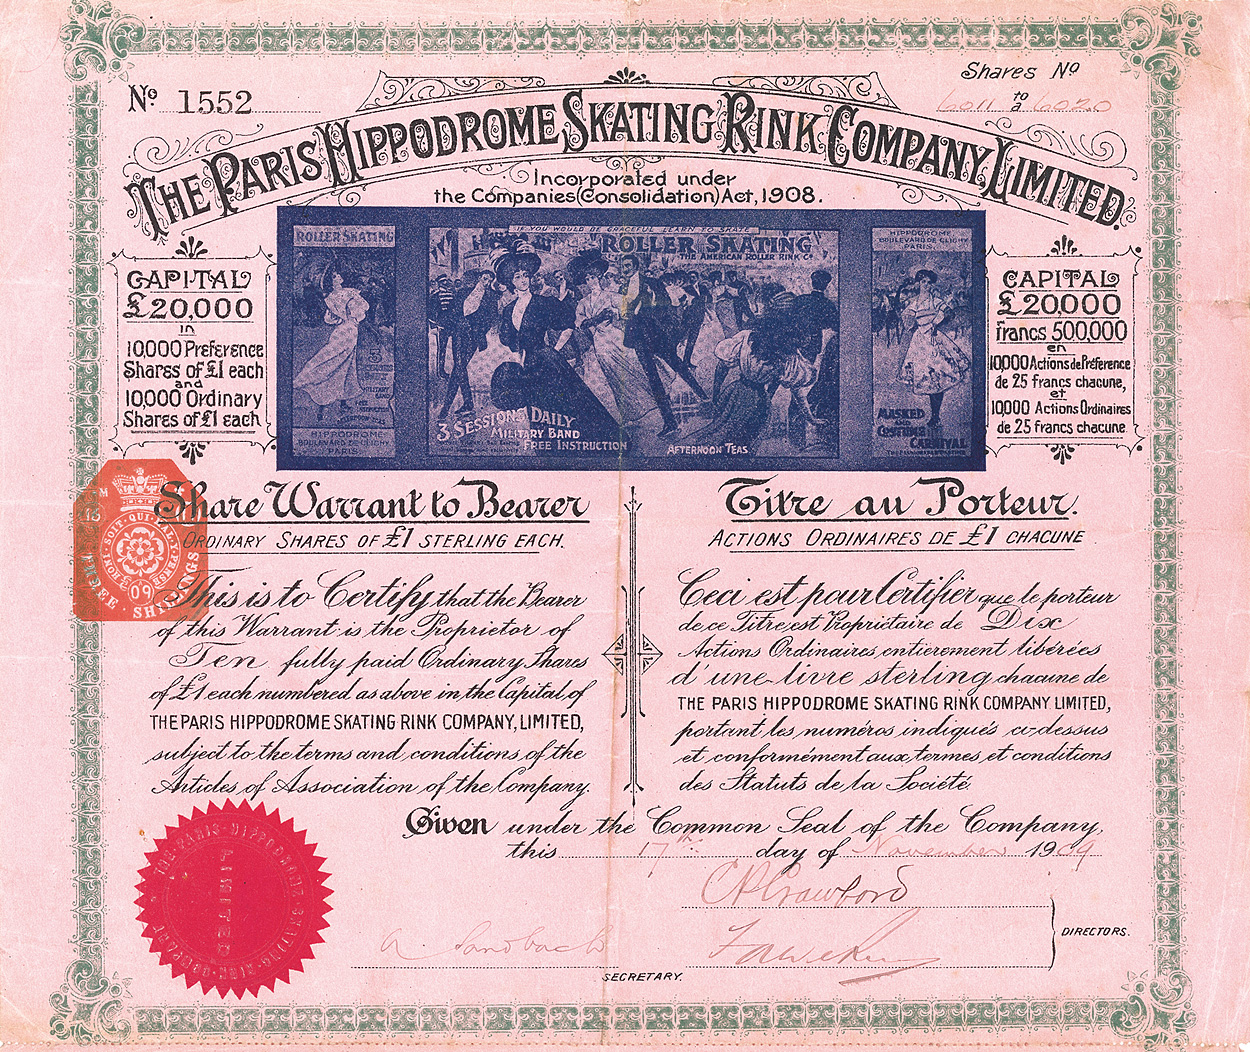 Nº 1552
Shares Nº
6011 to/a 6020
THE PARIS HIPPODROME SKATING RINK COMPANY, LIMITED.
Incorporated under
the Companies (Consolidation) Act, 1908.
CAPITAL
£20,000
in
10,000 Preference
Shares of £1 each
and
10,000 Ordinary
Shares of £1 each
ROLLER SKATING
HIPPODROME
BOULEVARD DE CLICHY
PARIS
IF YOU WOULD BE GRACEFUL LEARN TO SKATE
ROLLER SKATING
THE AMERICAN ROLLER RINK Cº
3 SESSIONS DAILY
MILITARY BAND
FREE INSTRUCTION
AFTERNOON TEAS
HIPPODROME
BOULEVARD DE CLICHY
PARIS
MASKED
AND
COSTUME
CARNIVAL
CAPITAL
£20,000
francs 500,000
en
10,000 Actions de Préference
de 25 francs chacune,
et
10,000 Actions Ordinaires
de 25 francs chacune
HONI·SOIT·QUI·MAL·Y·PENSE
09
THREE·SHILLINGS
Share Warrant to Bearer
ORDINARY SHARES OF £1 STERLING EACH.
This is to Certify that the Bearer
of this Warrant is the Proprietor of
Ten fully paid Ordinary Shares
of £1 each numbered as above in the Capital of
THE PARIS HIPPODROME SKATING RINK COMPANY, LIMITED,
subject to the terms and conditions of the
Articles of Association of the Company.
Titre au Porteur.
ACTIONS ORDINAIRES DE £1 CHACUNE
Ceci est pour Certifier que le porteur
de ce Titre est Propriétaire de Dix
Actions Ordinaires, entierement libérées
d'une livre sterling chacune de
THE PARIS HIPPODROME SKATING RINK COMPANY LIMITED,
portant les numéros indiqués ci-dessus
et conformément aux termes et conditions
des Statuts de la Société.
Given under the Common Seal of the Company,
this 17th day of November 1909
THE·PARIS·HIPPODROME·SKATING·RINK·COMPANY
LIMITED
C R Crawford
A. Sandbach
DIRECTORS.
SECRETARY.